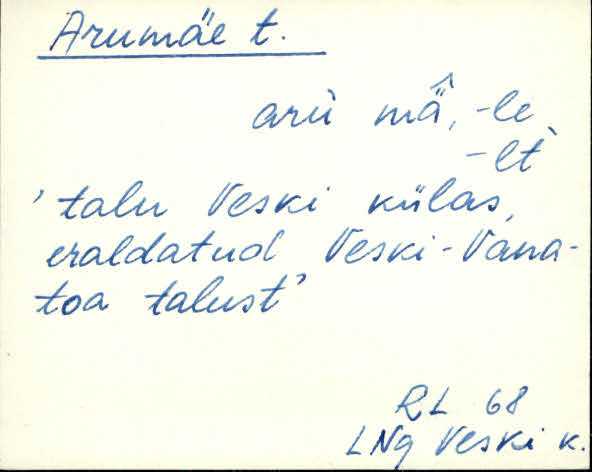 Arumäe t.
arù mä̂, -le,
-lt̀
'talu Veski külas,
eraldatud Veski-Vana-
toa talust'
RL 68
LNg Veski k.